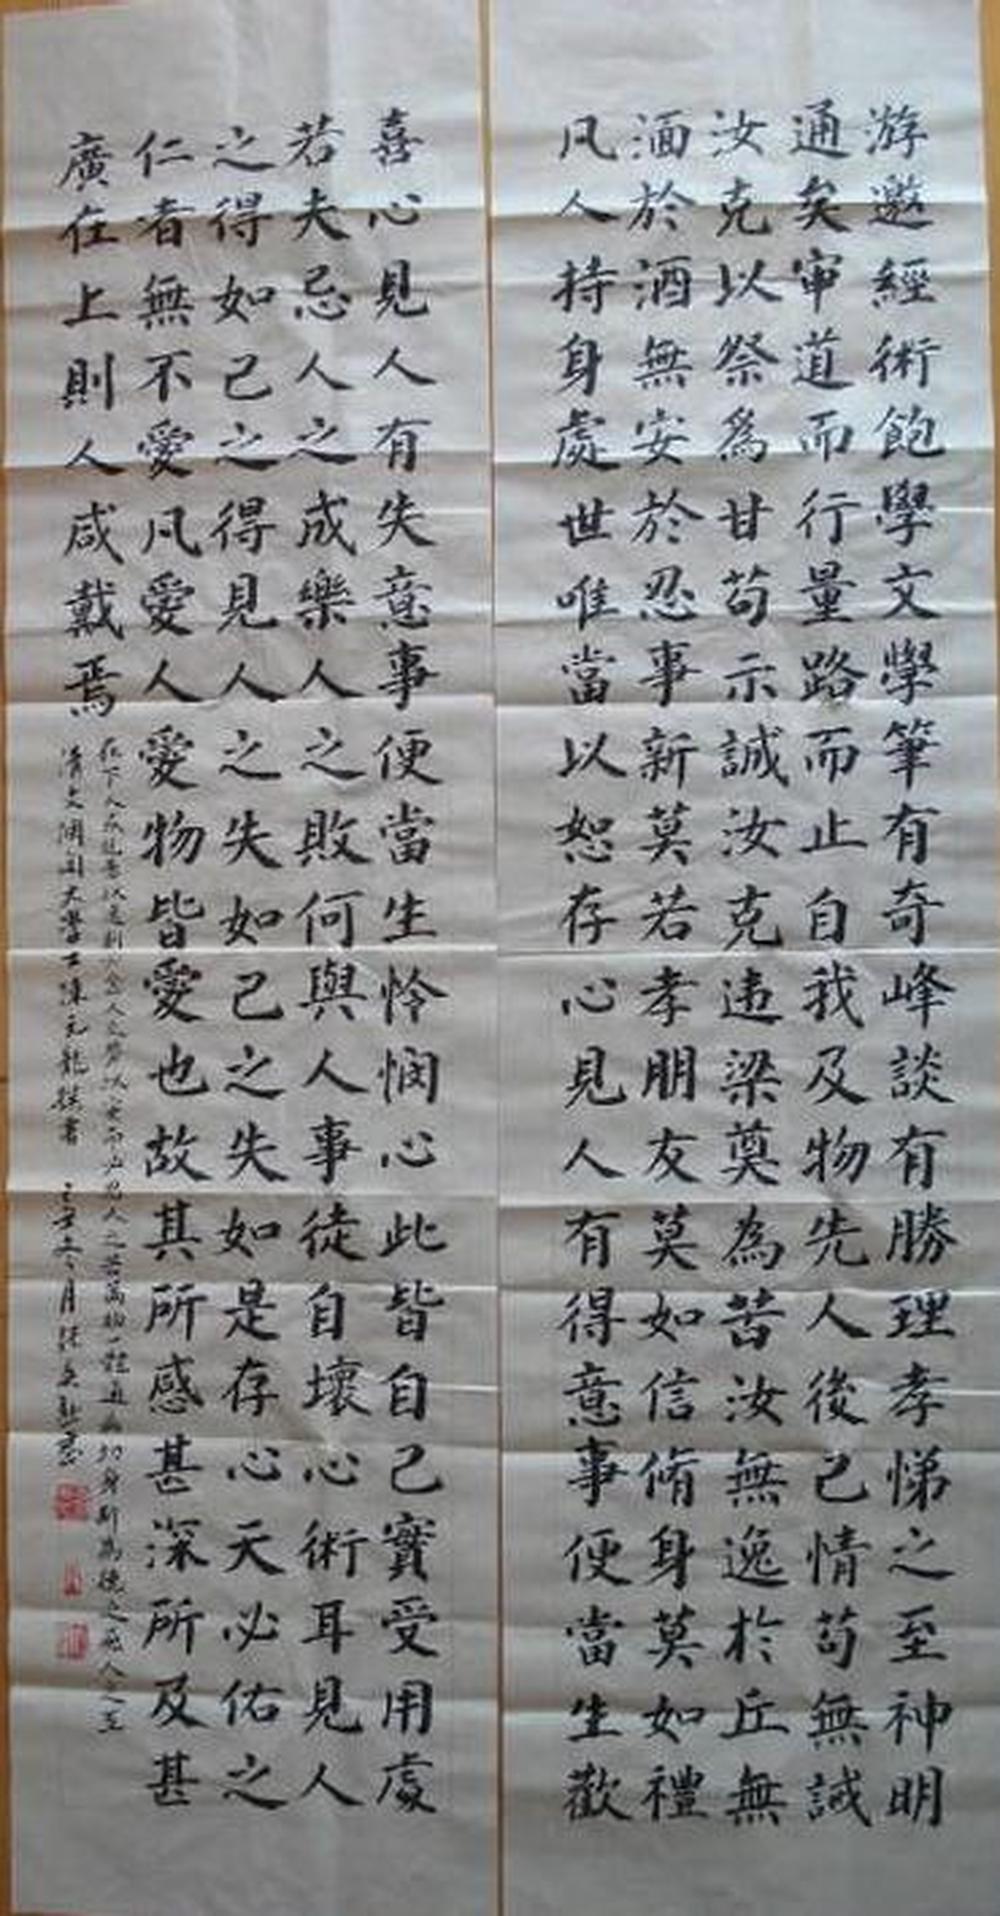 游邀經術飽學文學筆有奇峰談有勝理孝悌之至神明
通矣審道而行量路而止自我及物先人後己情苟無誠
汝克以祭為甘苟示誠汝克违梁奠為苦汝無逸於丘無
湎於酒無安於忍事新莫若孝朋友莫如信脩身莫如禮
凡人持身處世唯當以恕存心見人有得意事便當生歡
喜心見人有失意事便當生怜悯心此皆自己實受用處
若夫忌人之成樂人之敗何與人事徒自壞心術耳見人
之得如己之得見人之失如己之失如是存心天必佑之
仁者無不愛凡愛人愛物皆愛也故其所感甚深所及甚
廣在上則人咸戴焉